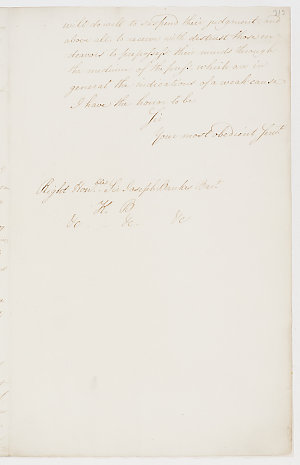 will do well to suspend their judgment and
above all, to receive with distrust those en-
deavors to prepossess their minds through
the medium of the press which are in
general the indications of a weak cause
I have the honor to be
Sir
Your most obedient Servt
Right Honble Sir Joseph Banks Bart
K. B.
&c &c &c